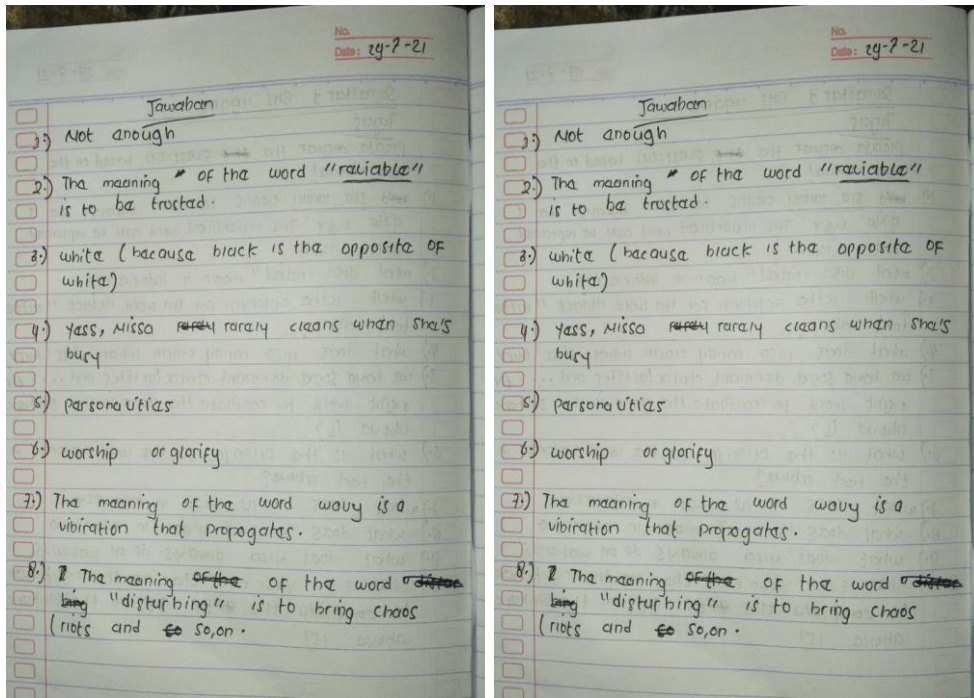 No.
Date: 29-7-21
Jawaban
1.) Not enough
2.) The meaning " of the word "reliable"
is to be trusted.
3.) white (because black is the opposite of
white)
4.) yess, Missa rarely rarely cleans when she's
busy
5.) personalities
6.) worship or glorify
7.) The meaning of the word wavy is a
vibiration that propogates.
8.) The meaning of the of the word
"disturbing" is to bring chaos
(riots and so, on.
No.
Date: 29-7-21
Jawaban
1.) Not enough
2.) The meaning " of the word "reliable"
is to be trusted.
3.) white (because black is the opposite of
white)
4.) yess, Missa rarely rarely cleans when she's
busy
5.) personalities
6.) worship or glorify
7.) The meaning of the word wavy is a
vibiration that propogates.
8.) The meaning of the of the word
"disturbing" is to bring chaos
(riots and so, on.